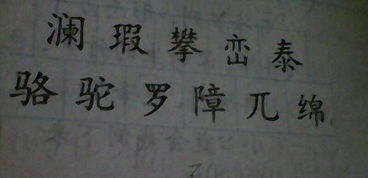 澜瑕攀峦泰
骆驼罗障兀绵